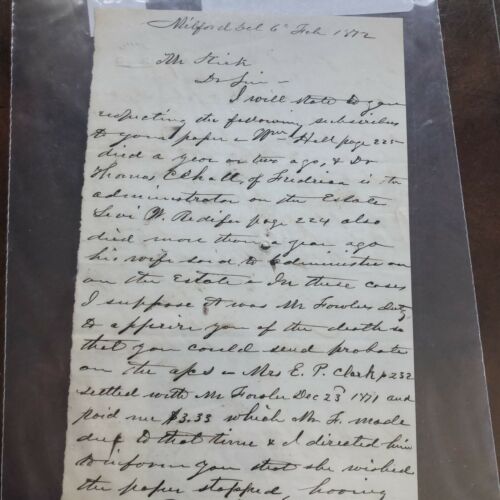 Milford Del 6th Feb 1872
Mr Kirk
Dr Sir -
I will state to you
respecting the following subscribers
to your paper - Wm Hall page 225
died a year or two ago, & Dr
Thomas Hall, of Fredrica is the
administrator on the Estate
Levi W. Redifer page 224 also
died more than a year ago
his wife said to administer on
on the Estate - In these cases
I suppose it was Mr Fowlers Duty
to apprise you of the deaths so
that you could send probate
on the a/cs - Mrs E. P. Clark p 232
settled with Mr Fowler Dec 23d 1871 and
paid me $3.33 which Mr F. made
due to that time & I directed him
to inform you that she wished
the paper stopped, having